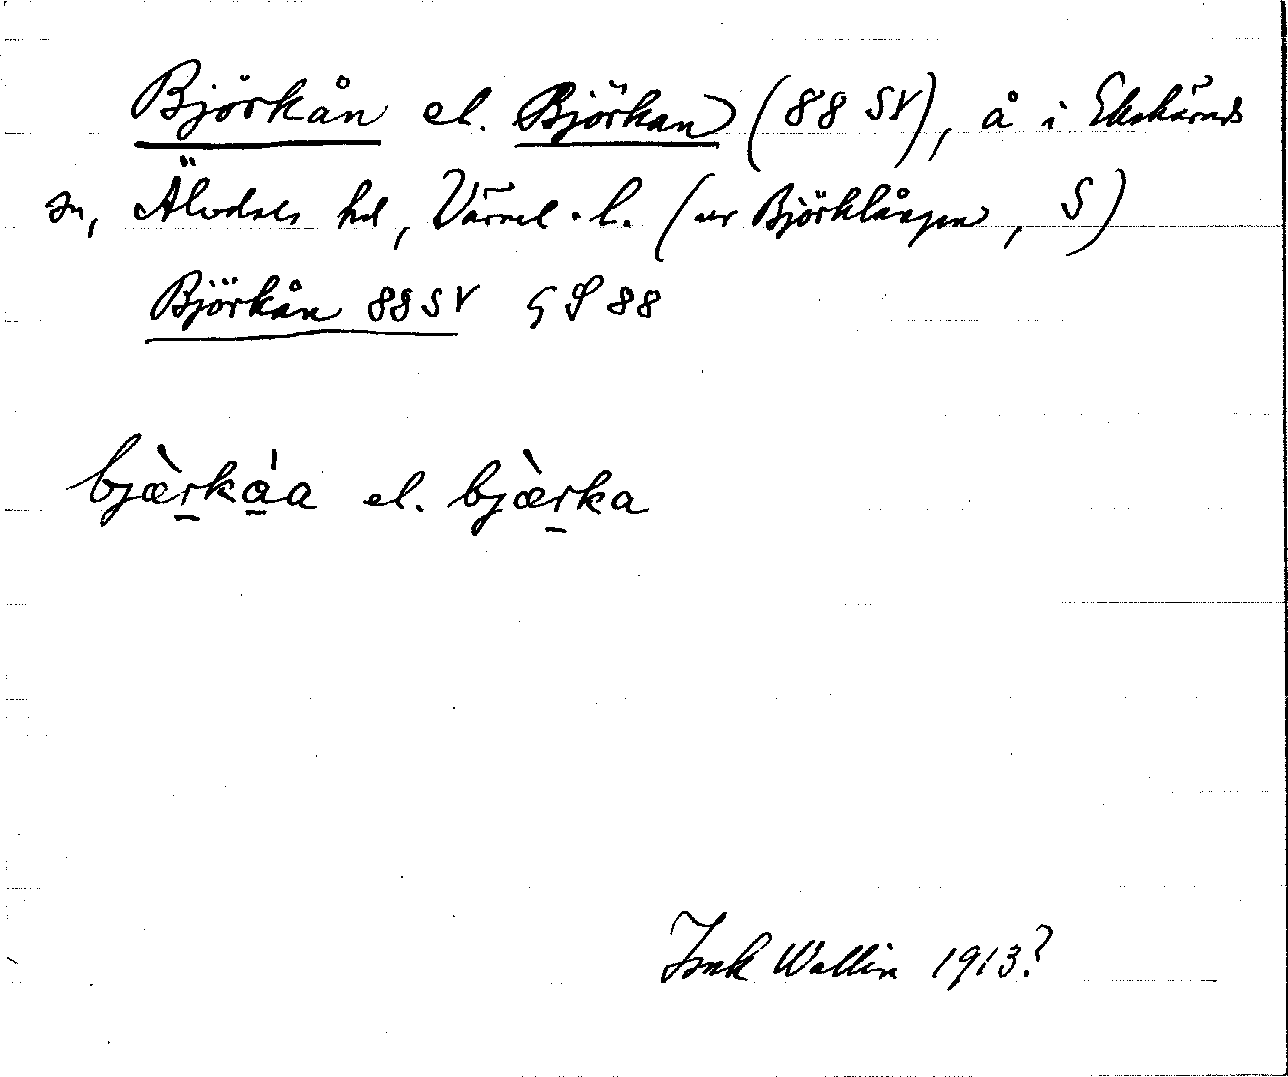 Björkån el. Björkan (88 SV), å i Ekshärads
sn, Älvdals hd, Värml. l. (ur Björklången, S)
Björkån 88 SV GS 88
bjæ̀rkå̀a el. bjæ̀rka
Isak Wallin 1913?